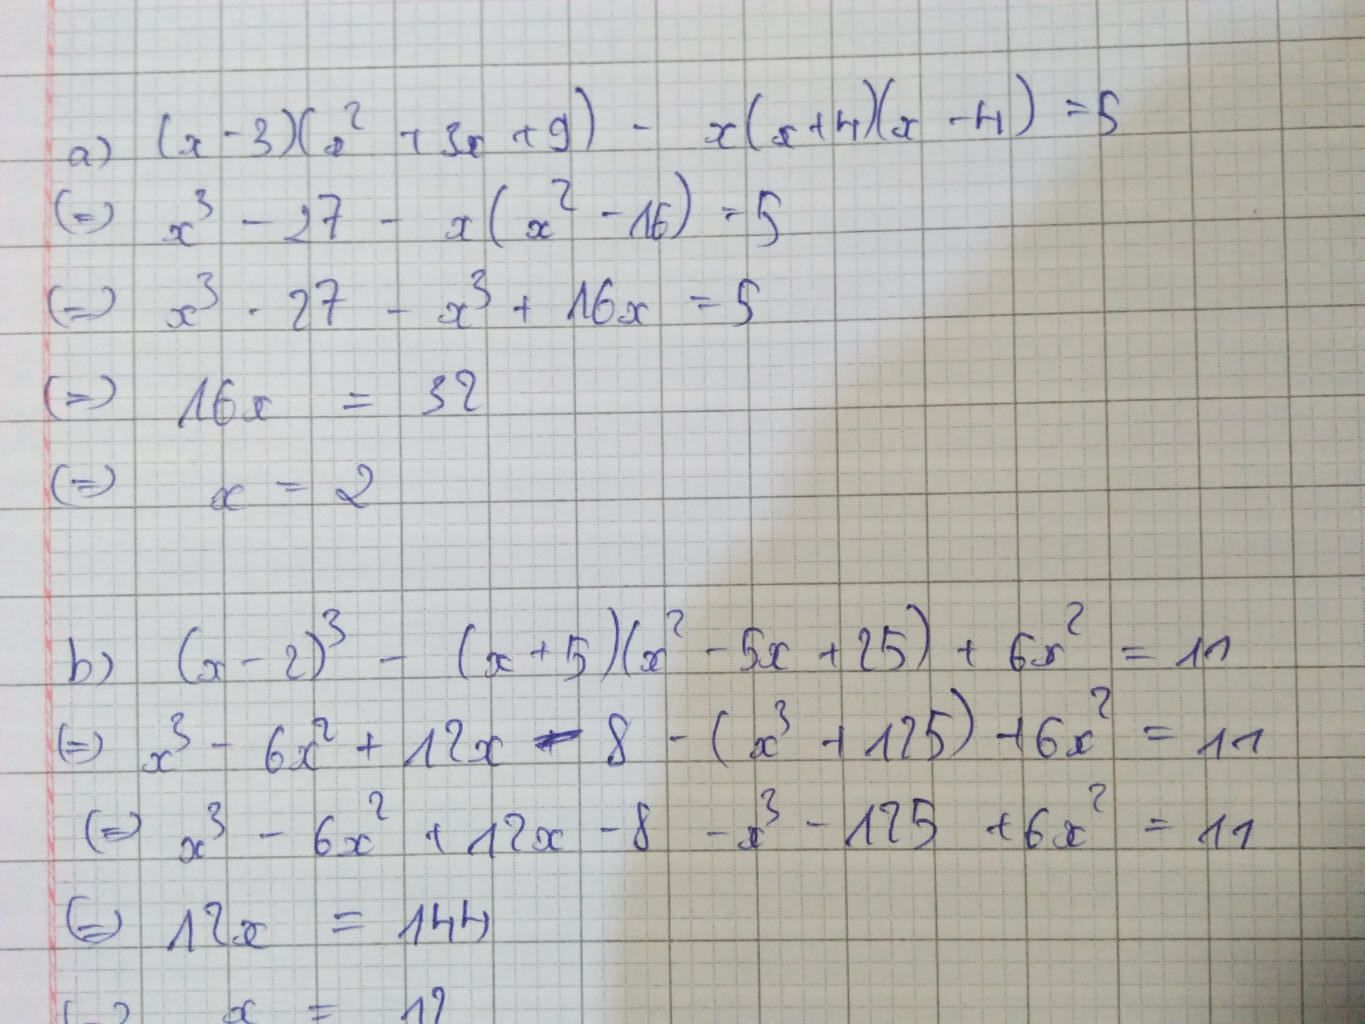 a) (x - 3)(x² + 3x + 9) - x(x+4)(x - 4) = 5
(=) x³ - 27 - x(x² - 16) = 5
(=) x³ - 27 - x³ + 16x = 5
(=) 16x = 32
(=) x = 2
b) (x - 2)³ - (x + 5)(x² - 5x + 25) + 6x² = 11
(=) x³ - 6x² + 12x - 8 - (x³ + 125) + 6x² = 11
(=) x³ - 6x² + 12x - 8 - x³ - 125 + 6x² = 11
(=) 12x = 144
(=) x = 12